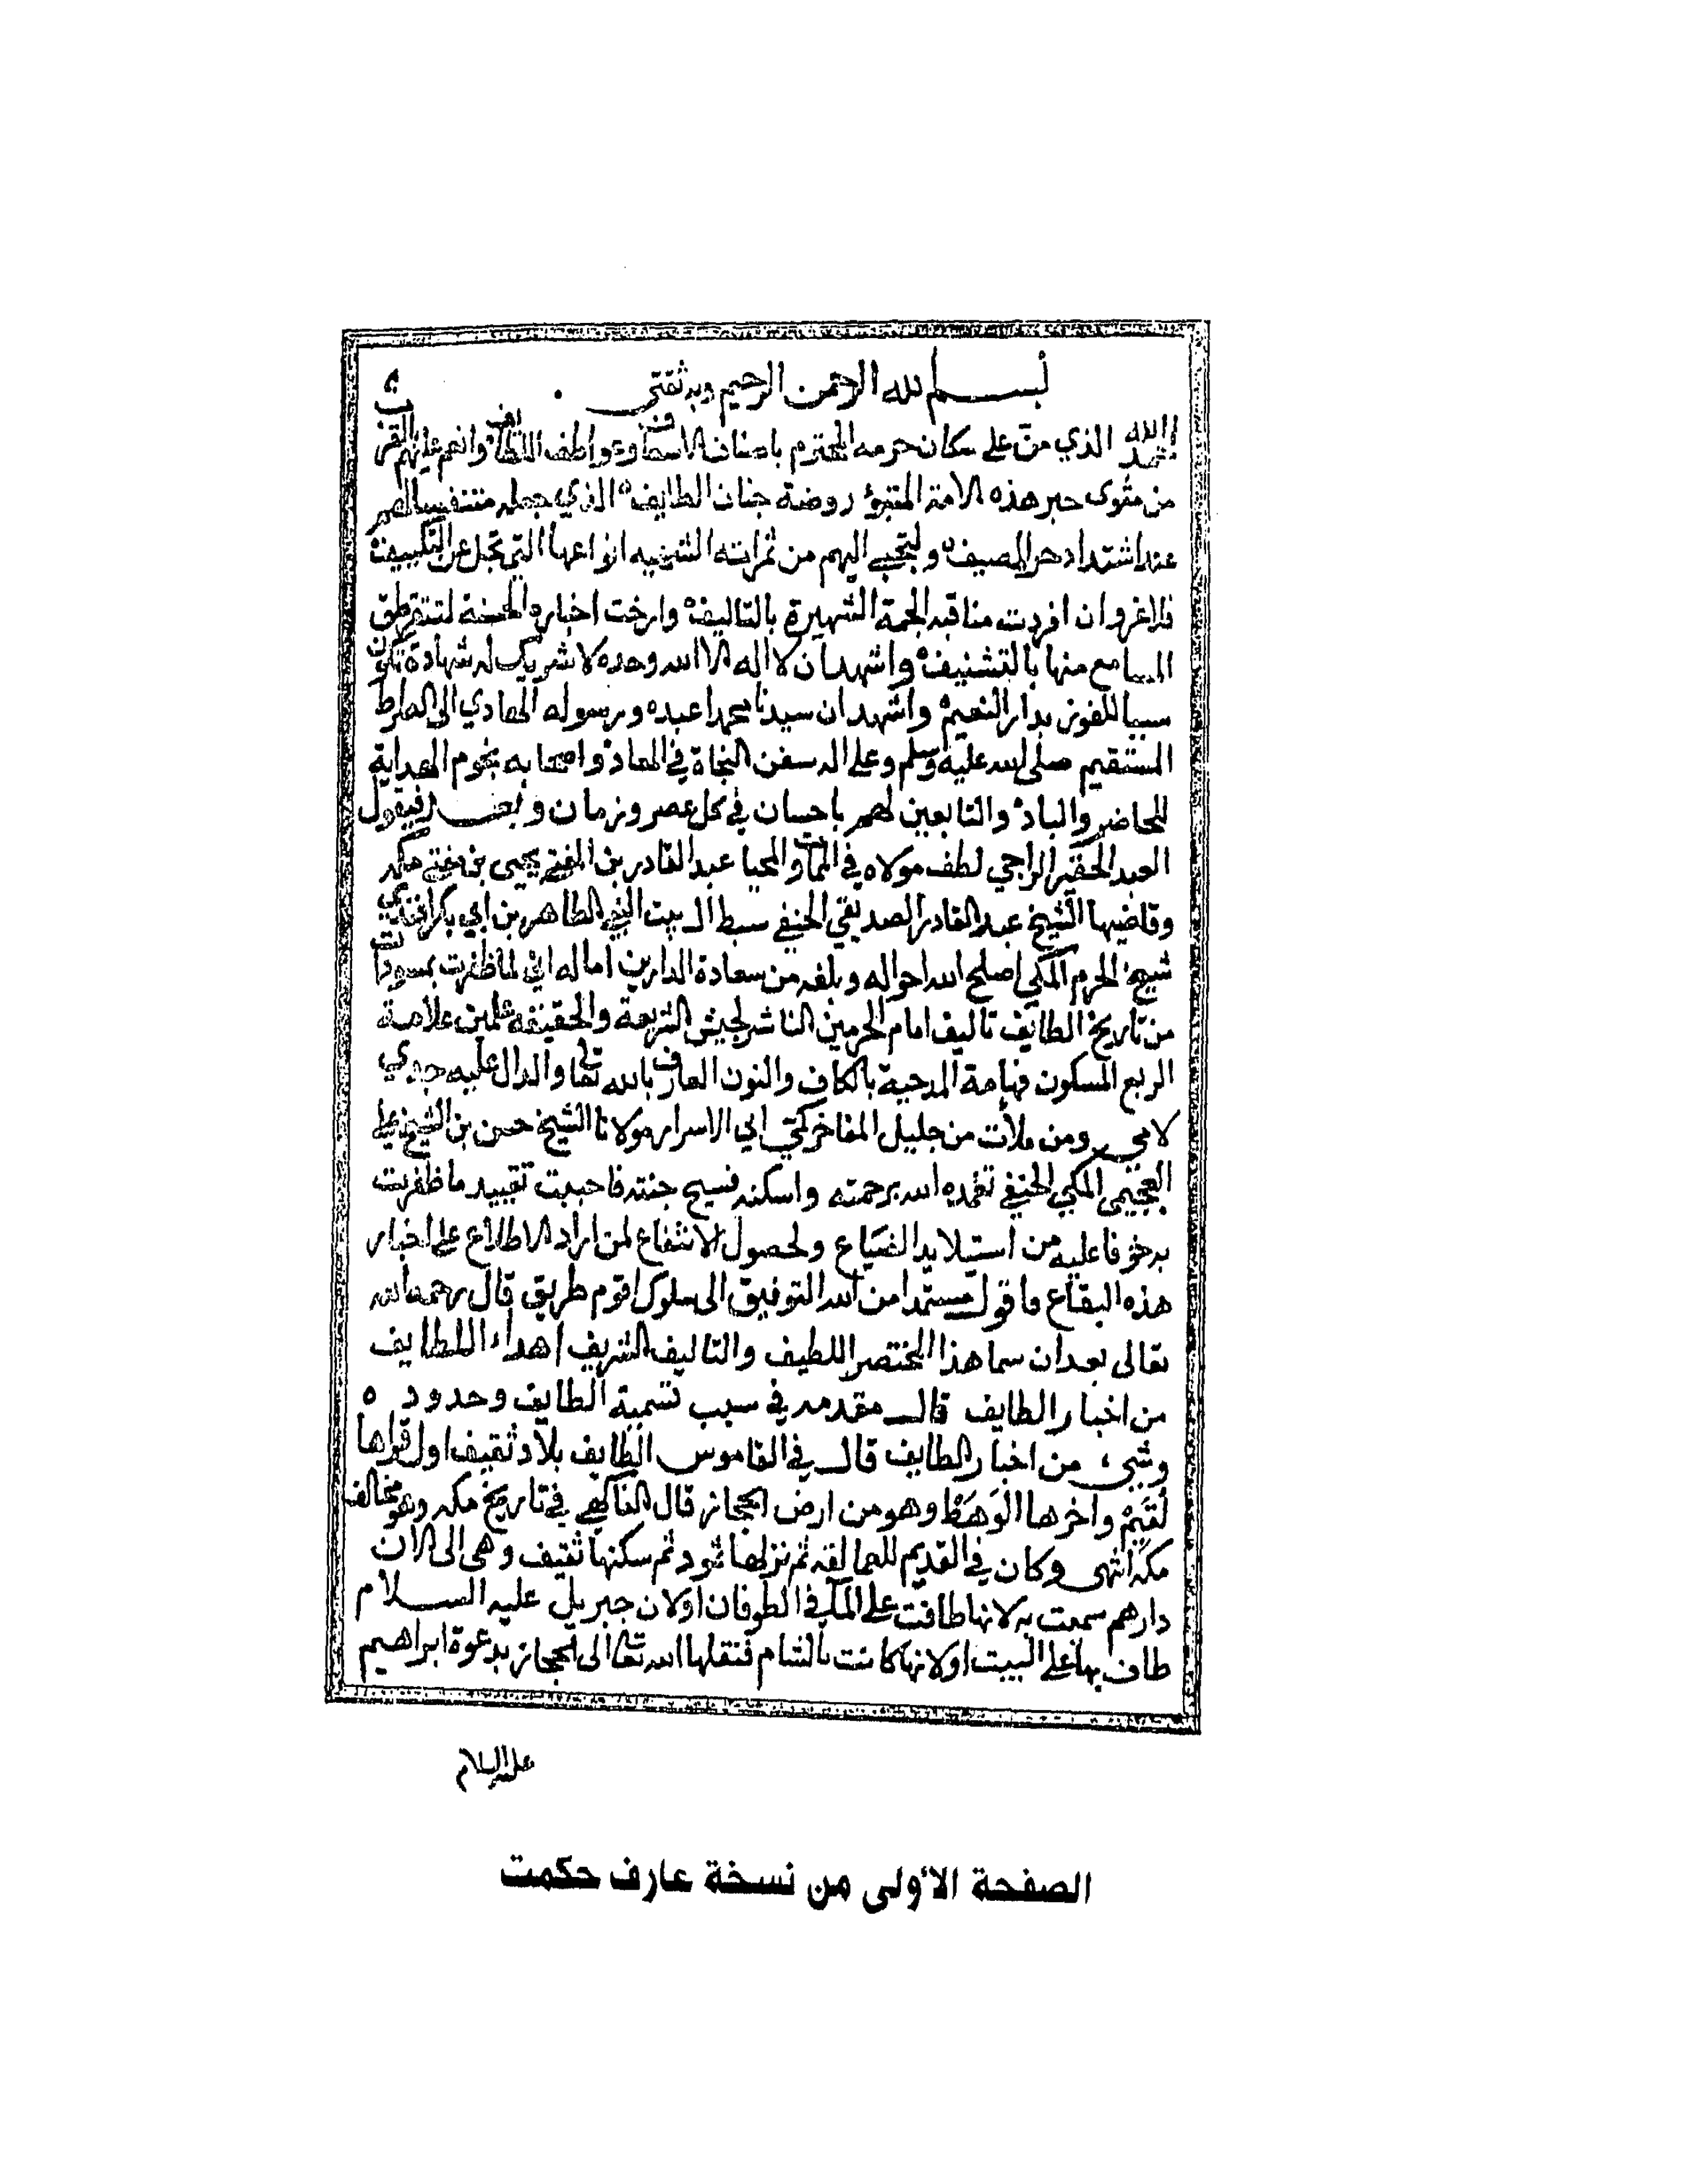 بسم الله الرحمن الرحيم وبه ثقتي
الحمد لله الذي منّ على سكان حرمه المحترم باصناف الاسعاف وعواطف اللطائف وانعم عليهم بالقرب
من مثوى حبر هذه الامة المتبوؤ روضة جنان الطايف الذي جعله متنفسا لهم
عند اشتداد حر المصيف وليجتبي اليهم من ثمراته الشهيه انواعها التي تجل عن التكييف
فلا غرو ان افردت مناقبه الجمة الشهيرة بالتاليف وارخت اخباره الحسنة لتتقرطق
المسامع منها بالتشنيف واشهد ان لا اله الا الله وحده لا شريك له شهادة تكون
سببا للفوز بدار النعيم واشهد ان سيدنا محمدا عبده ورسوله الهادي الى الصراط
المستقيم صلى الله عليه وسلم وعلى اله سفن النجاة في المعاد واصحابه نجوم الهداية
للحاضر والباد والتابعين لهم باحسان في كل عصر وزمان وبعد فيقول
العبد الحقير الراجي لطف مولاه في الممات والمحيا عبد القادر بن المفتي يحيى بن مفتي مكه
وقاضيها الشيخ عبد القادر الصديقي الحنفي سبط ال بيت الشيخ الطاهر بن ابي بكر افندي
شيخ الحرم المكي اصلح الله احواله وبلغه من سعادة الدارين اماله اني لما ظفرت بمسودات
من تاريخ الطايف تاليف امام الحرمين الناشر لجيش الشريعة والحقيقة علمين علامة
الربع المسكون فهامة المدحية بالكاف والنون العارف بالله تعالى والدال عليه جدي
لامي ومن ملأت من جليل المفاخر كمي ابي الاسرار مولانا الشيخ حسن بن الشيخ علي
العجيمي المكي الحنفي تغمده الله برحمته واسكنه فسيح جنته فاحببت تقييد ما ظفرت
به خوفا عليه من استيلا يد الضياع ولحصول الانتفاع لمن اراد الاطلاع على اخبار
هذه البقاع فاقول مستمدا من الله التوفيق الى سلوك اقوم طريق قال رحمه الله
تعالى بعد ان سما هذا المختصر اللطيف والتاليف الشريف اهداء اللطايف
من اخبار الطايف قال مقدمه في سبب تسمية الطايف وحدوده
وشيء من اخبار الطايف قال في القاموس الطايف بلاد ثقيف اول قراها
لُقَيم واخرها الوَهَط وهو من ارض الحجاز قال الفاكهي في تاريخ مكه وهو مخالف
مكة انتهى وكان في القديم للعمالقه ثم نزلها ثمود ثم سكنها ثقيف وهي الى الان
دارهم سميت به لانها طافت على الماء في الطوفان او لان جبريل عليه السلام
طاف بها على البيت او لانها كانت بالشام فنقلها الله تعالى الى الحجاز بدعوة ابراهيم
عليه السلام
الصفحة الأولى من نسخة عارف حكمت